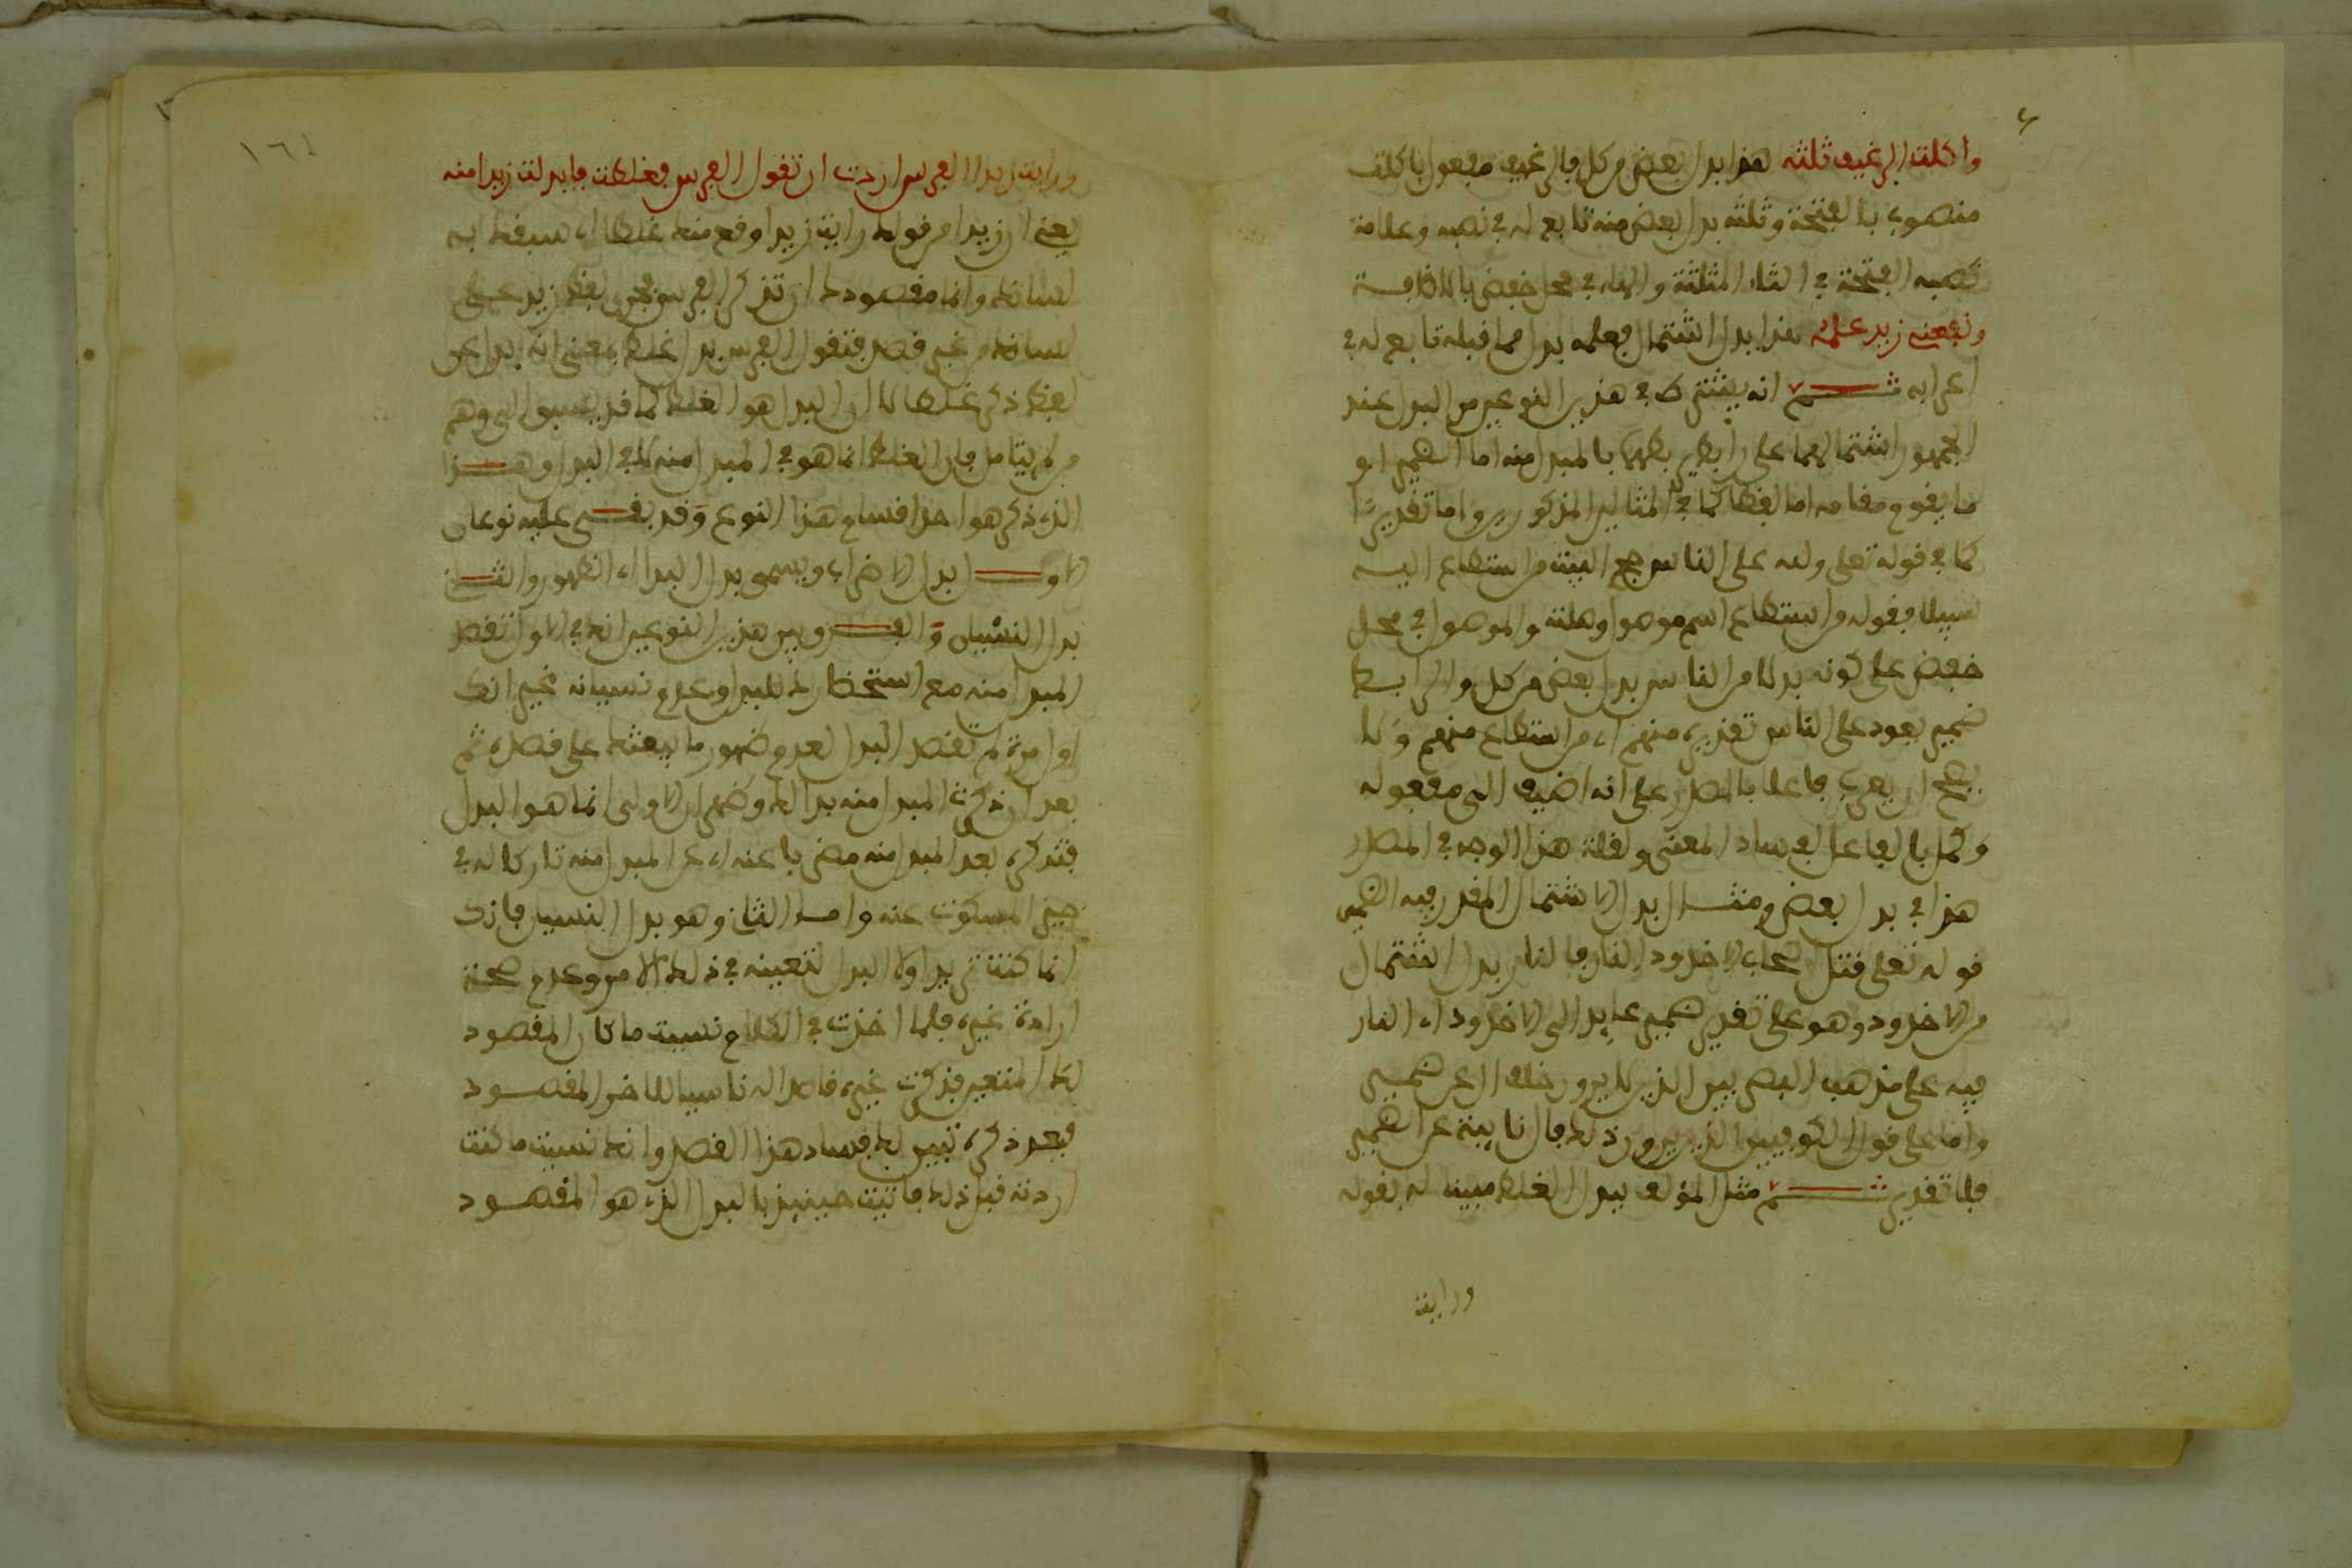 واكلت الرغيف ثلثه هذا بدل بعض من كل فالرغيف مفعول باكلت
منصوب بالفتحة وثلثه بدل بعض منه تابع له في نصبه وعلامة
نصبه الفتحة في الثاء المثلثة والهاء في محل خفض بالاضافة
ونفعني زيد علمه هذا بدل اشتمال فعلمه بدل مما قبله تابع له في
اعرابه ثم انه يشترط في هذين النوعين من البدل عند
الجمهور اشتمالهما على رابط يربطهما بالمبدل منه اما الضمير او
ما يقوم مقامه اما لفظا كما في المثالين المذكورين واما تقديرا
كما في قوله تعلى ولله على الناس حج البيت من استطاع اليه
سبيلا فقوله من استطاع اسم موصول وصلته والموصول في محل
خفض على كونه بدلا من الناس بدل بعض من كل والرابط
ضمير يعود على الناس تقديره منهم اي من استطاع منهم ولا
يصح ان يعرب فاعلا بالمصدر على انه اضيف الى مفعوله
وكمل بالفاعل لفساد المعنى ولقلة هذا الوجه في المصدر
هذا في بدل بعض ومثال بدل الاشتمال المقدر فيه الضمير
قوله تعلى قتل اصحاب الاخدود النار فالنار بدل اشتمال
من الاخدود وهو على تقدير ضمير عايد الى الاخدود اي النار
فيه على مذهب البصريين الذين لا يرون خلف ال عن ضمير
واما على قول الكوفيين الذين يرون ذلك فال نايبة عن الضمير
فلا تقدير ثم مثل المؤلف لبدل الغلط مبينا له بقوله
ورايت
ورايت زيدا الفرس اردت ان تقول الفرس فغلطت فابدلت زيدا منه
يعني ان زيدا من قولك رايت زيدا وقع منك غلطا اي سبقك به
لسانك وانما مقصودك ان تذكر الفرس فجرى لفظ زيد على
لسانك من غير قصد فتقول الفرس بدل غلط بمعنى انه بدل عن
لفظ ذكر غلطا لا ان البدل هو الغلط كما قد يسبق الى وهم
من لم يتامل فان الغلط انما هو في المبدل منه لا في البدل وهذا
الذي ذكر هو احد اقسام هذا النوع وقد بقي عليه نوعان
الاول بدل الاضراب ويسمى بدل البدا اي الظهور والثاني
بدل النسيان والفرق بين هذين النوعين انك في الاول تقصد
المبدل منه مع استحضارك للبدل وعدم نسيانه غير انك
اول مرة لم تقصد البدل لعدم ظهور ما يبعثك على قصده ثم
بعد ان ذكرت المبدل منه بدا لك وظهر ان الاولى انما هو البدل
فتذكره بعد المبدل منه مضربا عنه اي عن المبدل منه تاركا له في
حيز المسكوت عنه واما الثاني وهو بدل النسيان فانك
انما كنت تريد اولا البدل لتعينه في ذلك الامر وعدم صحة
ارادة غيره فلما اخذت في الكلام نسيت ما كان المقصود
لك المتعين فذكرت غيره قاصدا له ناسيا للاخر المقصود
فبعد ذكره تبين لك فساد هذا القصد وانك نسيت ما كنت
اردته قبل ذلك فاتيت حينيذ بالبدل الذي هو المقصود
١٦٤